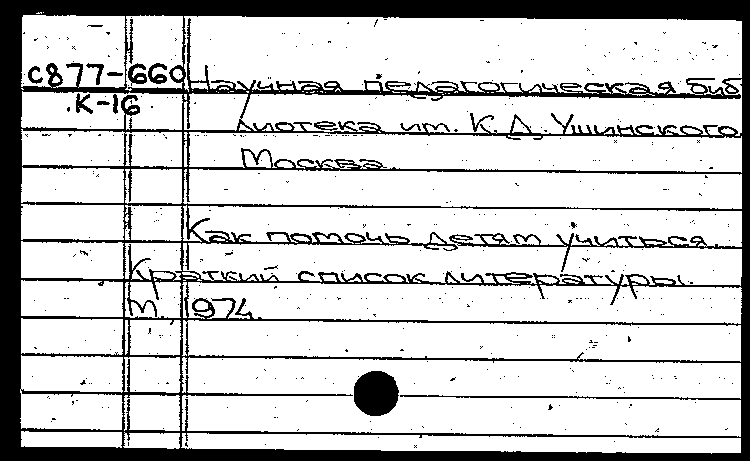 с877-660 Научная педагогическая биб
К-16
лиотека им. К. Д. Ушинского.
Москва.
Как помочь детям учиться.
Краткий список литературы.
М. 1974.